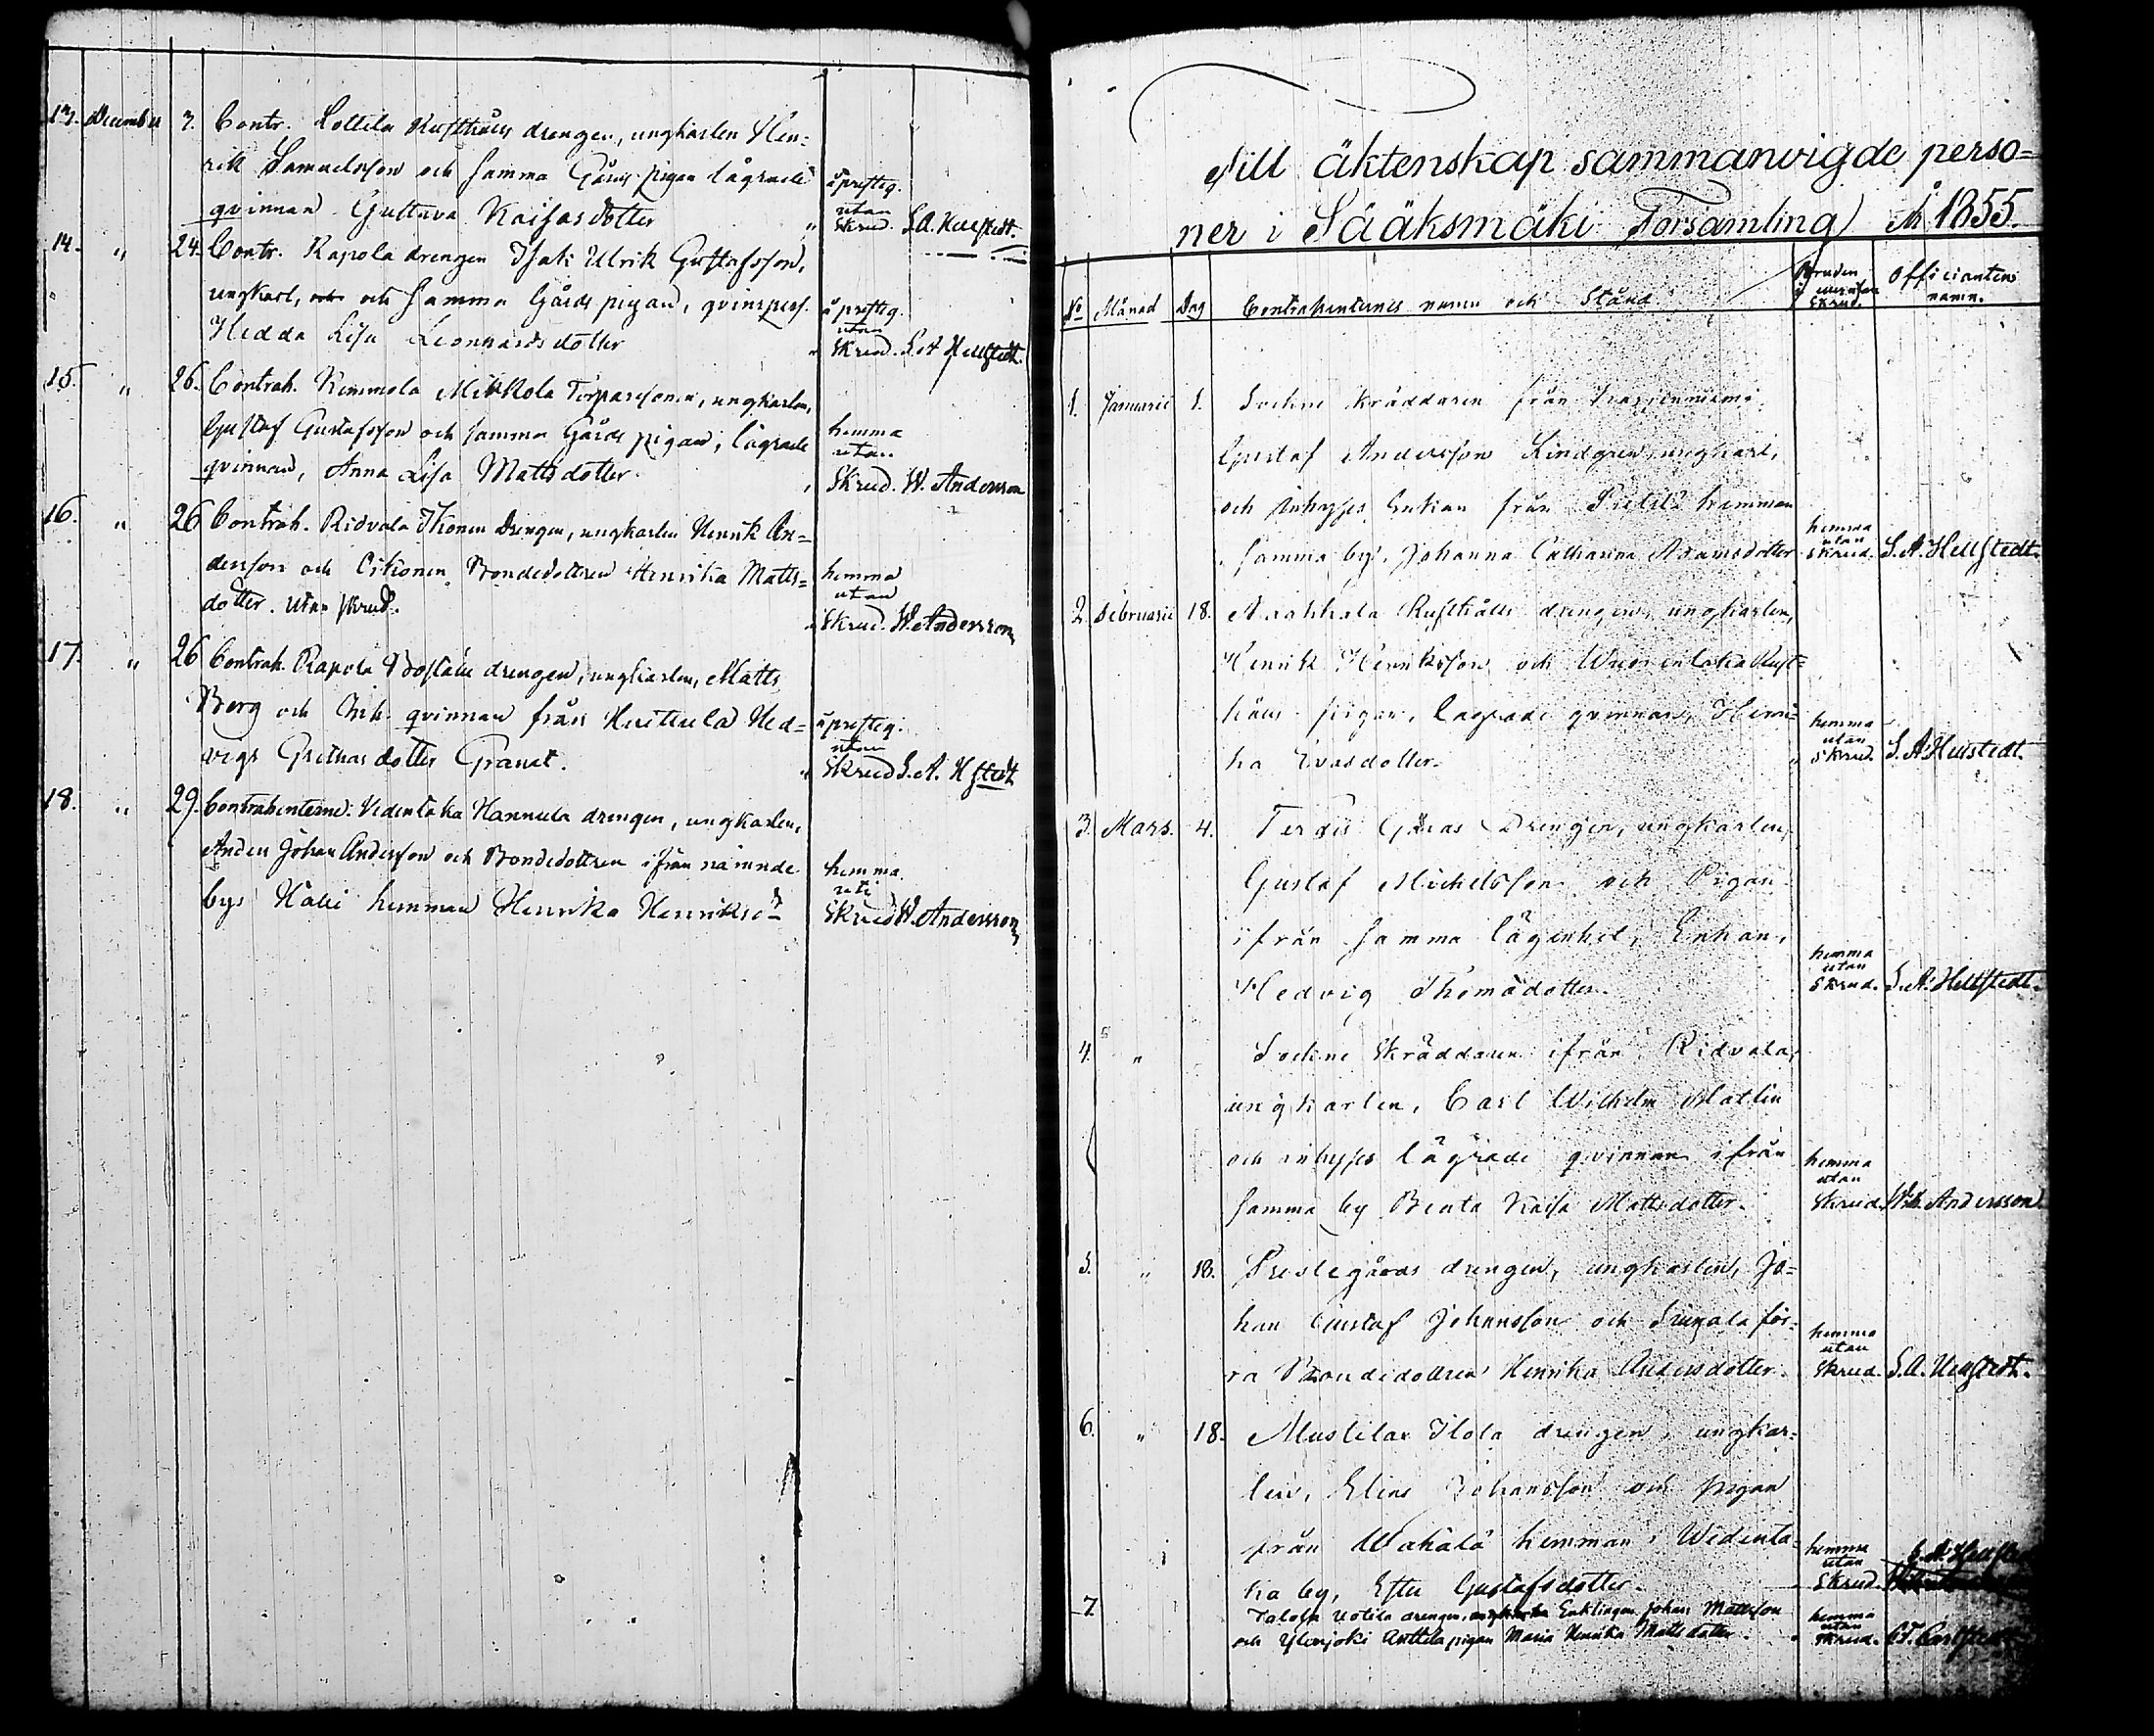 13. December 3. Contr. Lottila Rusthålls drengen, ungkarlen Hen-
rik Samuelsson och samma Gårds pigan lägrade å prestg.
qvinnan Gustava Kaisasdotter " utan Skrud. S.A. Hellstedt.
14. " 24. Contr. Rapola drengen Isak Ulrik Gustafsson,
ungkarl, och samma Gårds pigan, qvinspers. å prestg. utan
Hedda Lisa Leonhardsdotter " Skrud. S.A Hellstedt.
15. " 26. Contrah. Kemmola Mikkola Torparesonen, ungkarlen,
Gustaf Gustafsson och samma Gårds pigan, lägrade hemma utan
qvinnan, Anna Lisa Mattsdotter. Skrud. W. Andersson
16. " 26 Contrah. Ridvala Ihonen Drengen, ungkarlen Henrik An-
dersson och Bondedottren Henrika Matts- hemma utan
dotter. utan skrud. Skrud. W. Andersson
17. " 26 Contrah. Rapola drengen, ungkarlen, Matts
Berg och Inh. qvinnan från Huittula Hed- å prestg. utan
vigs Grethasdotter Granat. " Skrud S.A. Hstedt
18. " 29. Contrahenterne: Vedentaka Hannula drengen, ungkarlen,
Anders Johan Andersson och Bondedottren ifrån nämnde hemma uti
bys hemman Henrika Henriksd:r Skrud W. Andersson
Till äktenskap sammanvigde perso-
ner i Sääksmäki Församling År 1855.
No Månad Dag Contrahenternes namn och Stånd Bruden i Skrud. Officianten namn.
1. Januarii 1. Sockne skräddaren från
Gustaf Andersson Lindgren, ungkarl,
och Inhyses Enkan från hemman
samma by, Johanna Catharina Adamsdotter hemma utan Skrud. S.A. Hellstedt.
2. Februarii 18. Rusthålls drengen, ungkarlen,
Henrik Henriksson och Wuorentaka Rust-
hålls pigan, lägrade qvinnan, Henri-
ka Evasdotter. hemma utan " Skrud. S.A. Hellstedt.
3. Mars. 4. Terdis Gårds Drengen, ungkarlen,
Gustaf Michelsson och Pigan
ifrån samma lägenhet, Enkan,
Hedvig Thomädotter. hemma utan Skrud. S.A. Hellstedt.
4. " Sockne Skräddaren ifrån Ridvala,
ungkarlen, Carl Wilhelm Matlin
och inhyses lägrade qvinnan ifrån
samma by Beata Kaisa Mattsdotter. hemma utan Skrud. Wilh. Andersson.
5. " 18. Prestegårds drengen, ungkarlen, Jo-
han Gustaf Johansson och för-
ra Bondedottren Henrika Andersdotter. hemma utan Skrud. S.A. Hellstedt.
6. " 18. Mustilan Ilola drengen, ungkar-
len, Elias Johansson och pigan
från hemman i Wedenta-
ka by, Ester Gustafsdotter. hemma utan Skrud. S.A. Hellstedt
7. Uotila drengen, Enklingen Johan Mattsson
och Ylenjoki Anttila pigan Maria Henrika Mattsdotter. hemma utan Skrud. C.F. Carlstedt